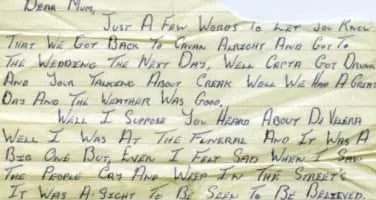 Dear Mum,
Just A Few Words To Let You Know
That We Got Back To Cavan Alright And Got To
The Wedding The Next Day, Well Got Drunk
And Your Talking About Creak Well We Had A Great
Day And The Weather Was Good.
Well I Suppose You Heard About De Velera
Well I Was At The Funeral And It Was A
Big One But, Even I Felt Sad When I Saw
The People Cry And Weep In The Street's
It Was A Sight To Be Seen To Be Believed.